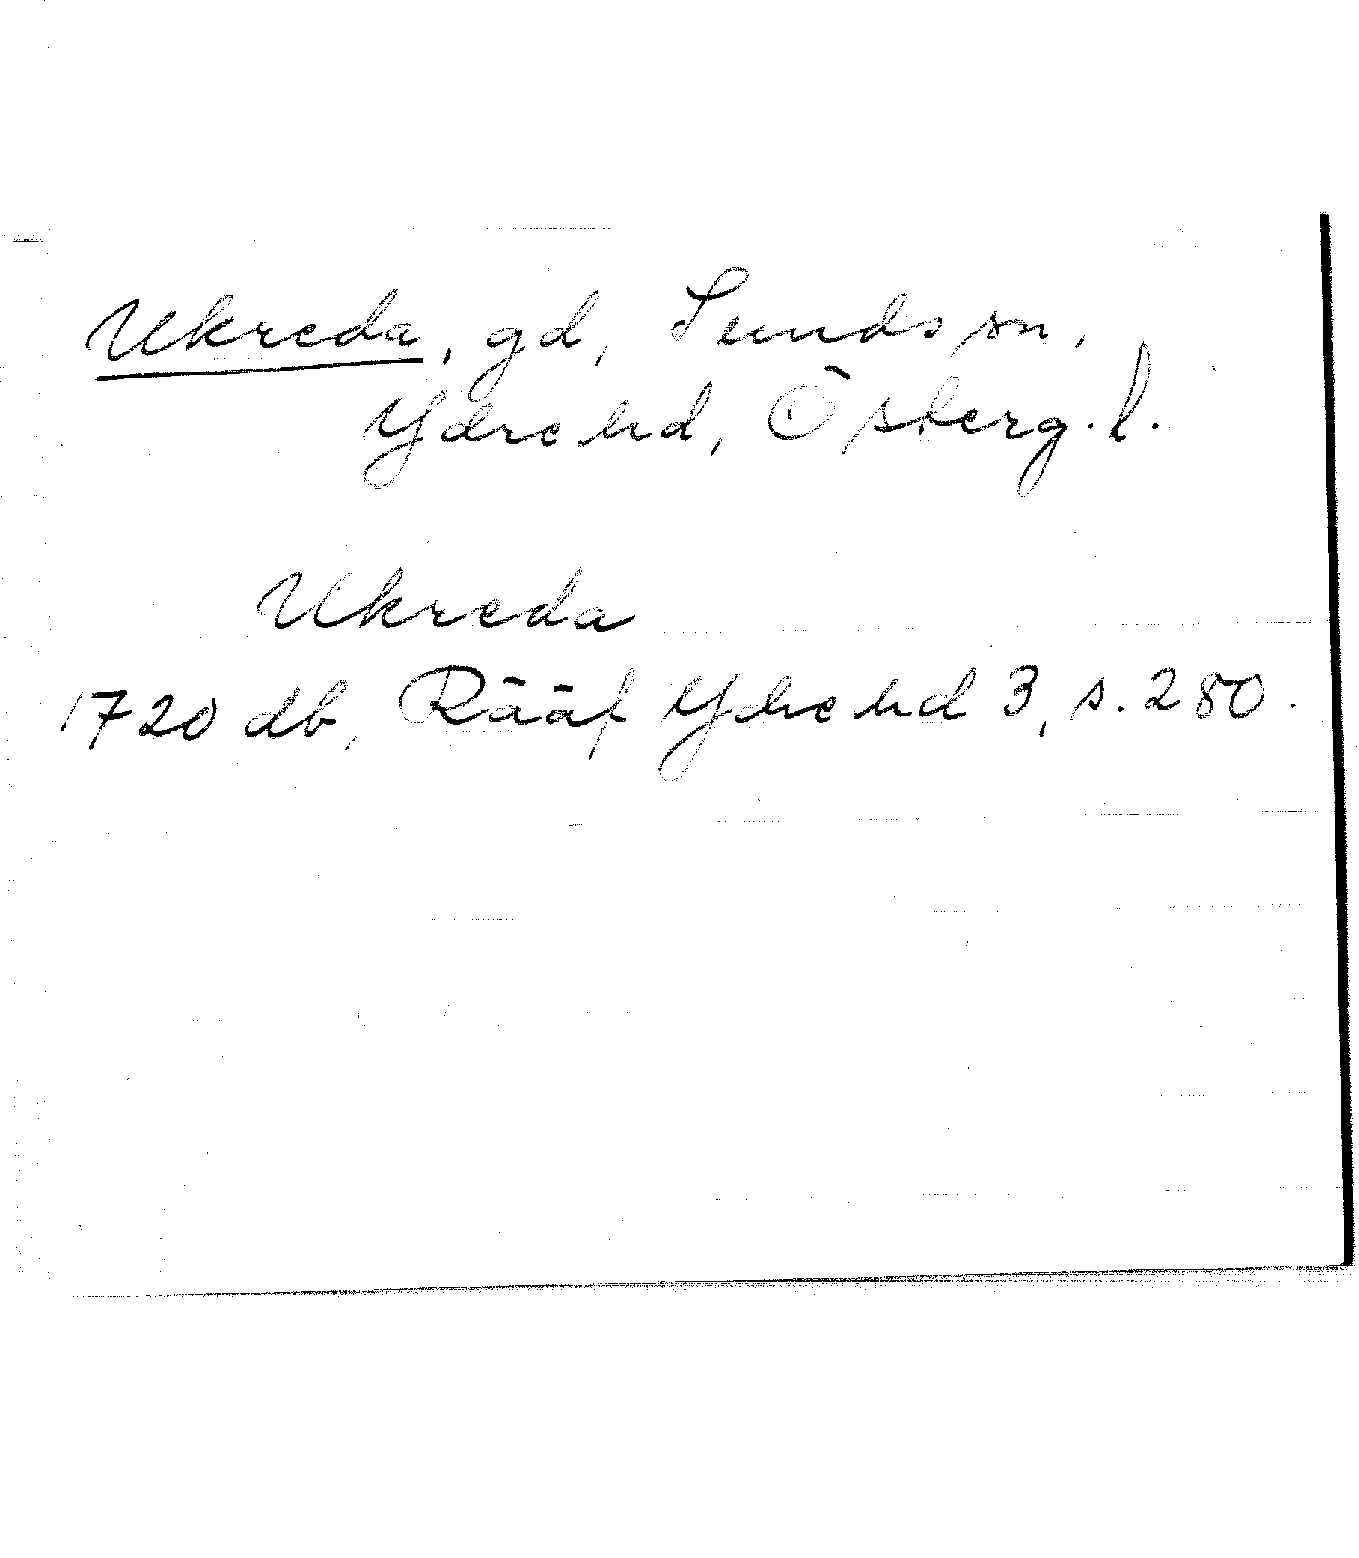 Ukreda, gd, Sunds sn,
Ydre hd, Österg. l.
Ukreda
1720 db, Rääf Ydre hd 3, s. 280.